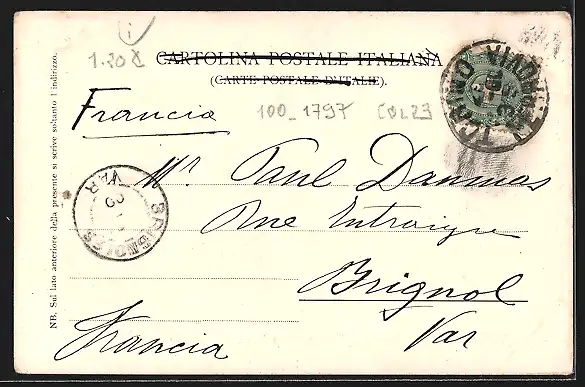 i
1.20
CARTOLINA POSTALE ITALIANA
(CARTE POSTALE D'ITALIE).
100_1797 COL23
Francia
Mr Paul Dammas
Rue Entraigue
Brignol
Var
Francia
NB. Sul lato anteriore della presente si scrive soltanto l'indirizzo.
TORINO
BRIGNOLES
VAR